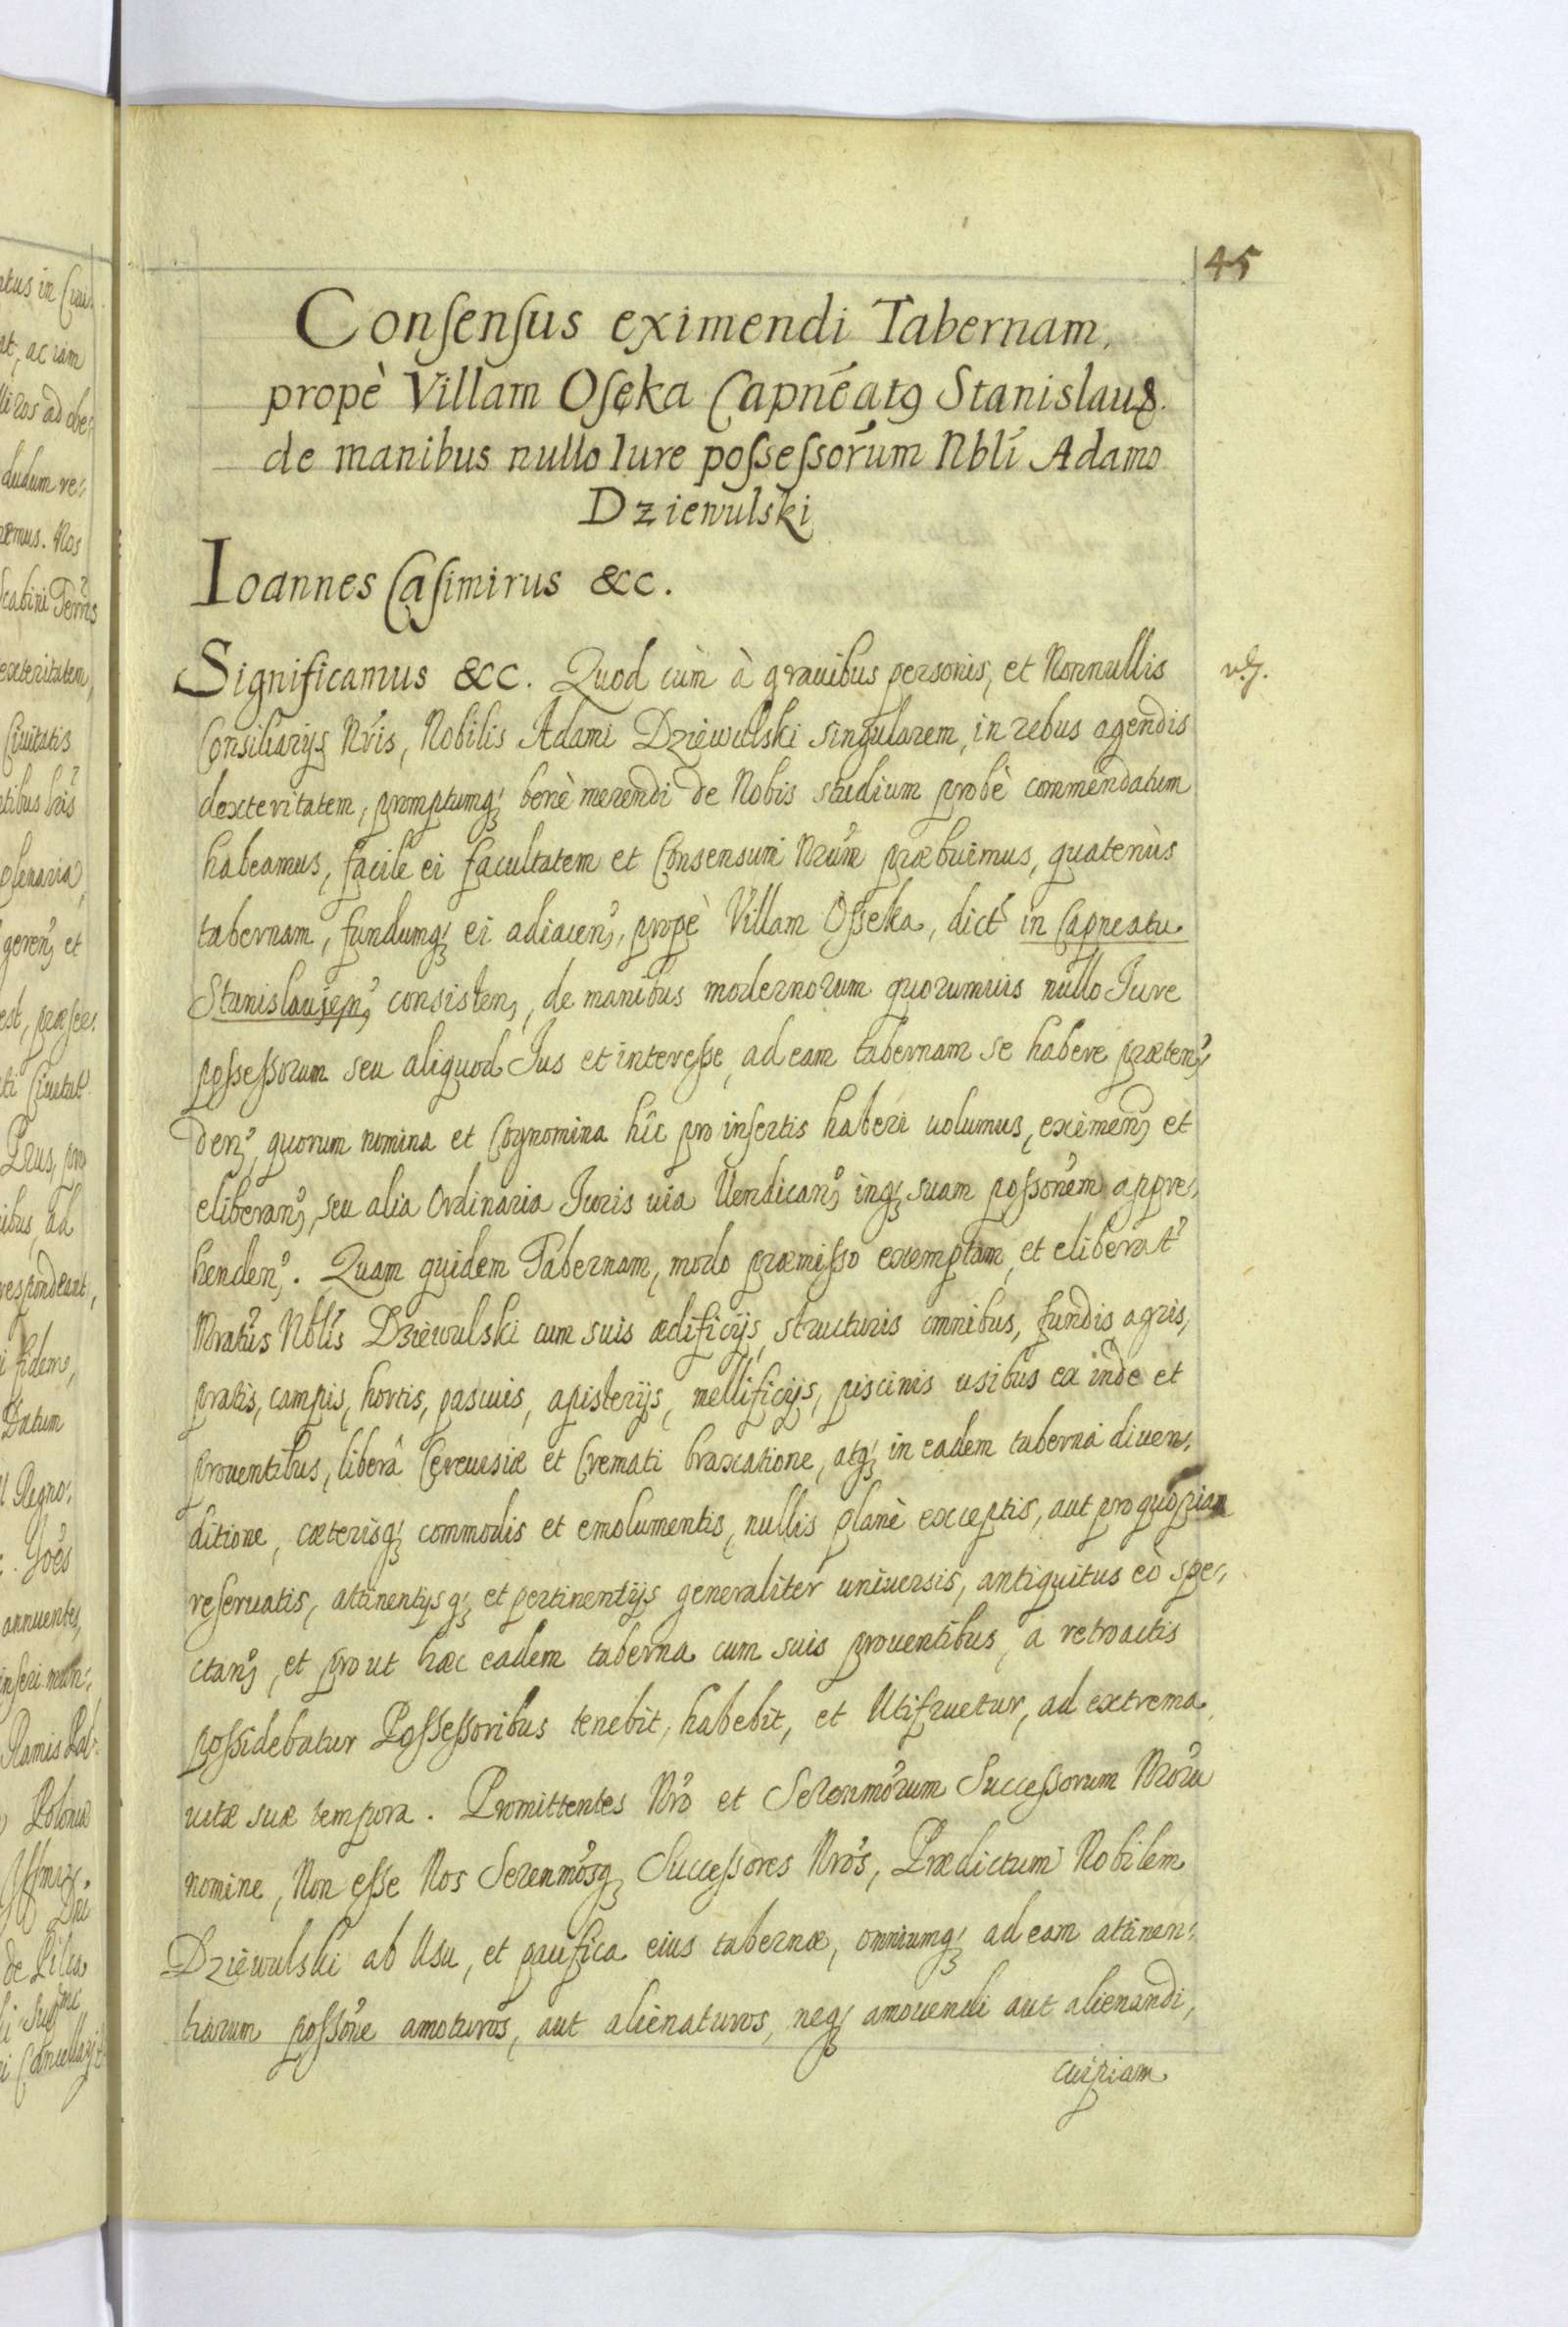 45
Consensus eximendi Tabernam,
propè Villam Oseka Capnéatꝰ Stanislauꝰ.
de manibus nullo Iure possessorum Nblí Adamo
Dziewulski
Ioannes Casimirus &cc.
Significamus &cc. Quod cùm à grauibus personis, et Nonnullis
Consiliarijs Nrís, Nobilis Adami Dziewulski singularem, in rebus agendis
dexteritatem, promptumqꝫ benè merendi de Nobis studium probè commendatum
habeamus, facilè ei facultatem et Consensum Nrum præbuimus, quatenùs
tabernam, fundumqꝫ ei adiacenꝰ, propè Villam Osseka, dict in Capneatu
Stanislauienꝰ consistenꝰ, de manibus modernorum quorumuis nullo Iure
possessorum seu aliquod Ius et interesse, ad eam tabernam se habere præten,
denꝰ, quorum nomina et Cognomina hîc pro insertis haberi uolumus, eximenꝰ et
eliberanꝰ, seu alia Ordinaria Iuris uia Uendicanꝰ inqꝫ suam possonem appre,
hendenꝰ. Quam quidem Tabernam, modo præmisso exemptam, et eliberat
Nratus Nblis Dziewulski cum suis ædificijs, structuris omnibus, fundis, agris,
pratis, campis, hortis, pascuis, apisterijs, mellificijs, piscinis usibus ex inde et
prouentibus, liberâ Cereuisiæ et Cremati braxatione, atqꝫ in eadem tabernâ diuen,
ditione, cæterisqꝫ commodis et emolumentis, nullis planè exceptis, aut pro quopiam
reseruatis, attinentijsqꝫ et pertinentijs generaliter uniuersis, antiquitus eò spe,
ctanꝰ, et prout hæc eadem taberna cum suis prouentibus, a retroactis
possidebatur Possessoribus tenebit, habebit, et Utifruetur, ad extrema
uitæ suæ tempora. Promittentes Nro et Serenmorum Successorum Nroru
nomine, Non esse Nos Serenmosqꝫ Successores Nros, Prædictum Nobilem
Dziewulski ab Usu, et paufica eius tabernæ, omniumqꝫ ad eam attinen,
tiarum possone amoturos, aut alienaturos, neqꝫ amouendi aut alienandi,
cuipiam